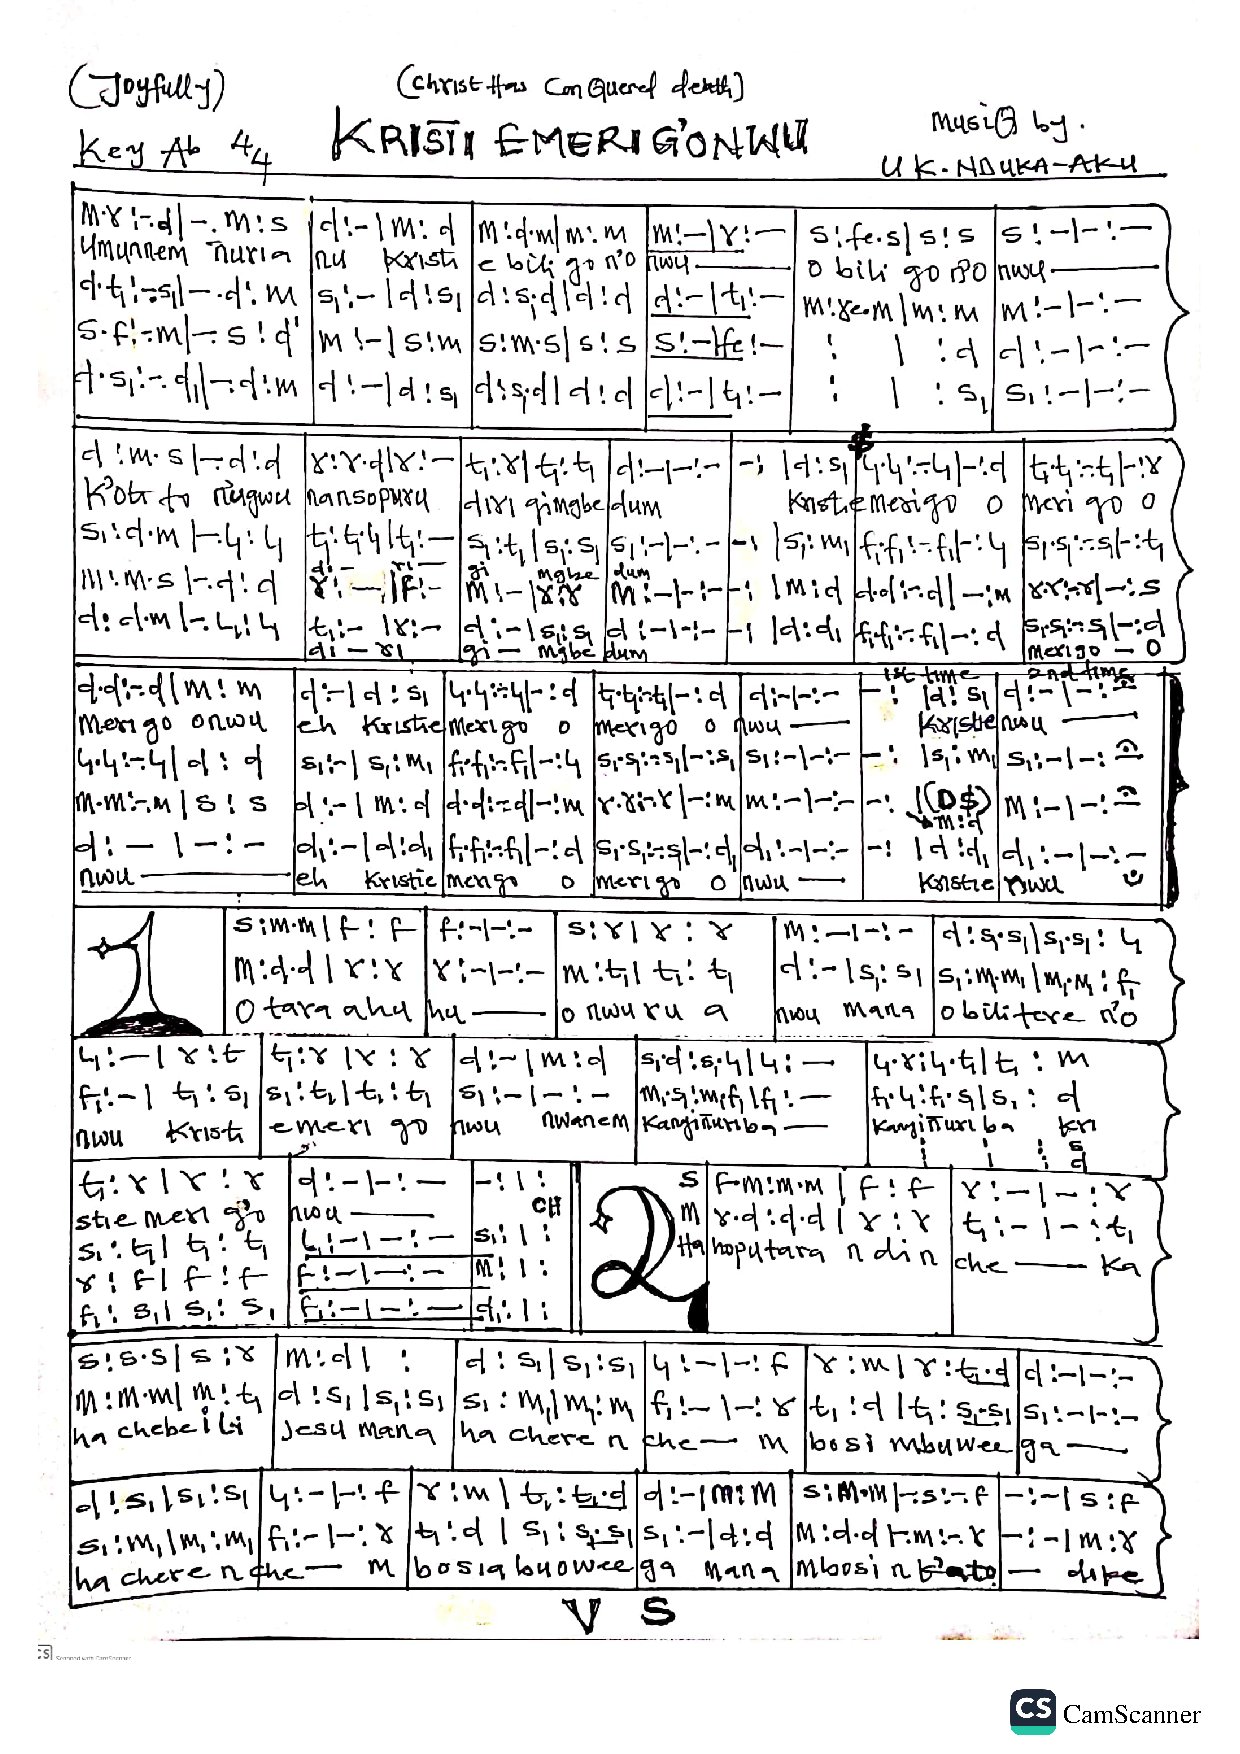 (Joyfully) (Christ Has Conquered death)
Key Ab 4/4 KRISTI EMERIG'ONWU Music by.
U K. NDUKA-AKU
m.r:-.d|-.m:s d:-|m:d m:d.m|m:m m:-|r:- s:fe.s|s:s s:-|-:-
Umunnem ñuria nu Kristi e bili go n'o nwu o bili go n'o nwu
d.t₁:-.s₁|-.d:m s₁:-|d:s₁ d:s₁.d|d:d d:-|t₁:- m:re.m|m:m m:-|-:-
s.f:-.m|-.s:d' m:-|s:m s:m.s|s:s s:-|fe:- : | :d d:-|-:-
d.s₁:-.d₁|-.d:m d:-|d:s₁ d:s₁.d|d:d d:-|t₁:- : | :s₁ s₁:-|-:-
d:m.s|-.d:d r:r.d|r:- t₁:r|t₁:t₁ d:-|-:- -:|d:s₁ l₁.l₁:-.l₁|-:d t₁.t₁:-.t₁|-:r
K'oti to ñugwu nansopuru diri gimgbe dum Kristiemerigo o meri go o
s₁:d.m|-.l₁:l₁ t₁:t₁.l₁|t₁:- s₁:t₁|s₁:s₁ s₁:-|-:- -:|s₁:m₁ f₁.f₁:-.f₁|-:l₁ s₁.s₁:-.s₁|-:t₁
di- ri- gi mgbe dum
m:m.s|-.d:d r:-|f:- m:-|r:r m:-|-:- -:|m:d d.d:-.d|-:m r.r:-.r|-:s
d:d.m|-.l₁:l₁ t₁:-|r:- d:-|s₁:s₁ d:-|-:- -:|d:d₁ f₁.f₁:-.f₁|-:d s₁.s₁:-.s₁|-:d
di - ri gi- mgbe dum merigo - o
1st time 2nd time
d.d:-.d|m:m d:-|d:s₁ l₁.l₁:-.l₁|-:d t₁.t₁:-.t₁|-:d d:-|-:- -:|d:s₁ d:-|-:-
merigo onwu eh Kristie merigo o merigo o nwu Kristie nwu
l₁.l₁:-.l₁|d:d s₁:-|s₁:m₁ f₁.f₁:-.f₁|-:l₁ s₁.s₁:-.s₁|-:s₁ s₁:-|-:- -:|s₁:m₁ s₁:-|-:
m.m:-.m|s:s d:-|m:d d.d:-.d|-:m r.r:-.r|-:m m:-|-:- -:|(DS) m:-|-:
m:d
d:-|-:- d₁:-|d:d₁ f₁.f₁:-.f₁|-:d s₁.s₁:-.s₁|-:d₁ d₁:-|-:- -:|d:d₁ d₁:-|-:-
nwu eh Kristie merigo o merigo o nwu Kristie nwu
1 s:m.m|f:f f:-|-:- s:r|r:r m:-|-:- d:s₁.s₁|s₁.s₁:l₁
m:d.d|r:r r:-|-:- m:t₁|t₁:t₁ d:-|s₁:s₁ s₁:m₁.m₁|m₁.m₁:f₁
O tara ahu hu o nwu ru a nwu mana o bilitere n'o
l₁:-|r:t t₁:r|r:r d:-|m:d s₁.d:s₁.l₁|l₁:- l₁.r:l₁.t₁|t₁:m
f₁:-|t₁:s₁ s₁:t₁|t₁:t₁ s₁:-|-:- m₁.s₁:m₁.f₁|f₁:- f₁.l₁:f₁.s₁|s₁:d
nwu Kristi emeri go nwu nwanem Kanyiñuriba Kanyiñuri ba Kri
: | : s
d
t₁:r|r:r d:-|-:- -:|: s f.m:m.m|f:f r:-|-:r
stie meri go nwu CH 2 m r.d:d.d|r:r t₁:-|-:t₁
s₁:t₁|t₁:t₁ l₁:-|-:- s₁:|: Ha hoputara n din che Ka
r:f|f:f f:-|-:- m:|:
f₁:s₁|s₁:s₁ f₁:-|-:- d₁:|:
s:s.s|s:r m:d|: d:s₁|s₁:s₁ l₁:-|-:f r:m|r:t₁.d d:-|-:-
m:m.m|m:t₁ d:s₁|s₁:s₁ s₁:m₁|m₁:m f₁:-|-:r t₁:d|t₁:s₁.s₁ s₁:-|-:-
ha chebe ili Jesu mana ha chere n che- m bosi mbuwee ga
d:s₁|s₁:s₁ l₁:-|-:f r:m|t₁:t₁.d d:-|m:m s:m.m|-.s:-.f -:-|s:f
s₁:m₁|m₁:m₁ f₁:-|-:r t₁:d|s₁:s₁.s₁ s₁:-|d:d m:d.d|-.m:-.r -:-|m:r
ha chere n che- m bosiabuowee ga mana mbosi n k'ato - dike
V S
CS Scanned with CamScanner
CS CamScanner